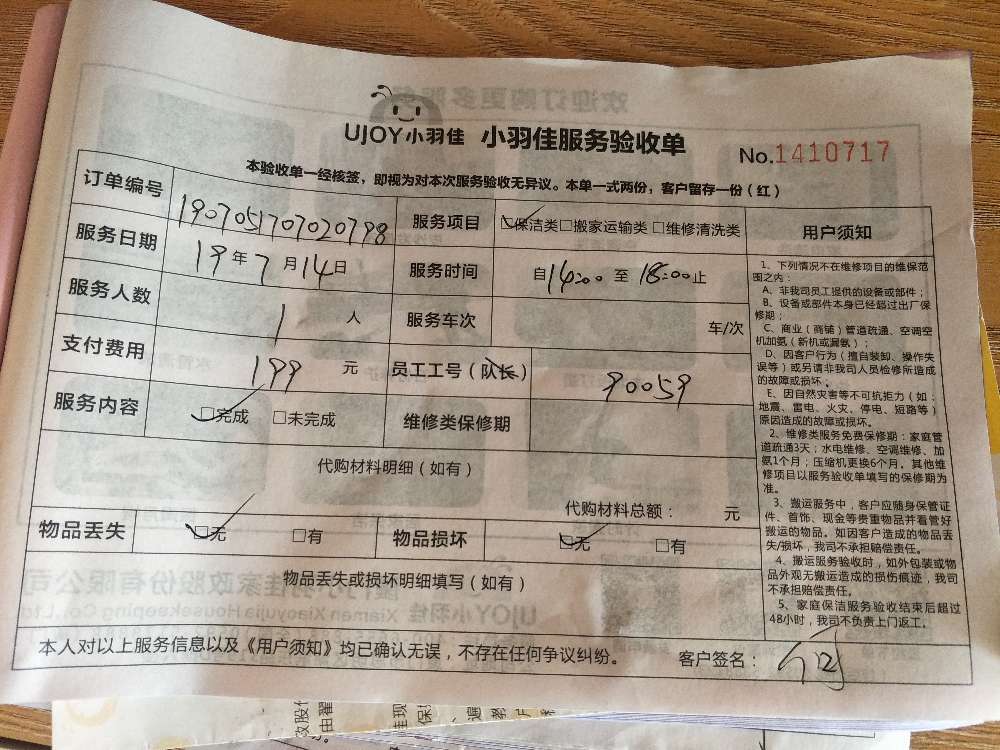 UJOY小羽佳 小羽佳服务验收单 No.1410717
本验收单一经核签，即视为对本次服务验收无异议。本单一式两份，客户留存一份（红）
订单编号 190705170702079B 服务项目 ☑保洁类□搬家运输类 □维修清洗类
服务日期 19年7月14日 服务时间 自14:00至18:00止
服务人数 1 人 服务车次 车/次
支付费用 199 元 员工工号（队长） 90059
服务内容 ☑完成 □未完成 维修类保修期
代购材料明细（如有）
代购材料总额： 元
物品丢失 ☑无 □有 物品损坏 ☑无 □有
物品丢失或损坏明细填写（如有）
用户须知
1、下列情况不在维修项目的维保范
围之内：
A、非我司员工提供的设备或部件；
B、设备或部件本身已经超过出厂保
修期；
C、商业（商铺）管道疏通、空调空
机加氨（新机或漏氨）；
D、因客户行为（擅自装卸、操作失
误等）或另请非我司人员检修所造成
的故障或损坏。
E、因自然灾害等不可抗拒力（如：
地震、雷电、火灾、停电、短路等）
原因造成的故障或损坏。
2、维修类服务免费保修期：家庭管
道疏通3天；水电维修、空调维修、加
氨1个月；压缩机更换6个月。其他维
修项目以服务验收单填写的保修期为
准。
3、搬运服务中，客户应随身保管证
件、首饰、现金等贵重物品并看管好
搬运的物品。如因客户造成的物品丢
失/损坏，我司不承担赔偿责任。
4、搬运服务验收时，如外包装或物
品外观无搬运造成的损伤痕迹，我司
不承担赔偿责任。
5、家庭保洁服务验收结束后超过
48小时，我司不负责上门返工。
本人对以上服务信息以及《用户须知》均已确认无误，不存在任何争议纠纷。 客户签名：